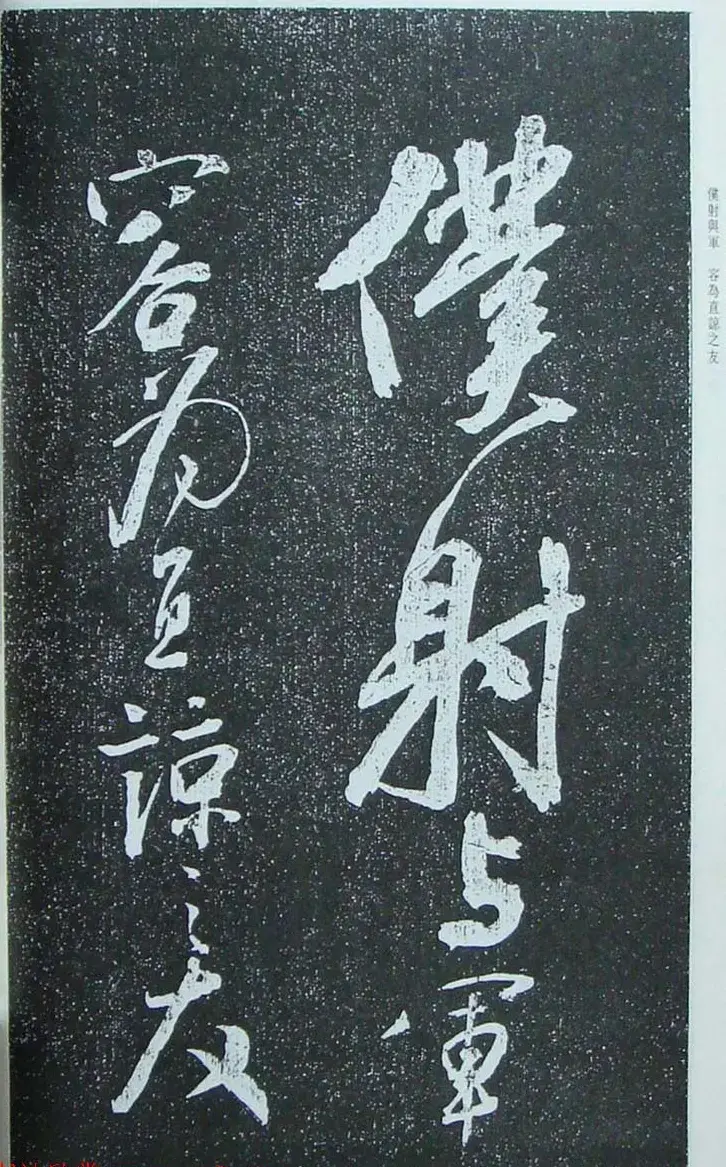 僕射与軍
容为直諒之友
僕射與軍　容為直諒之友